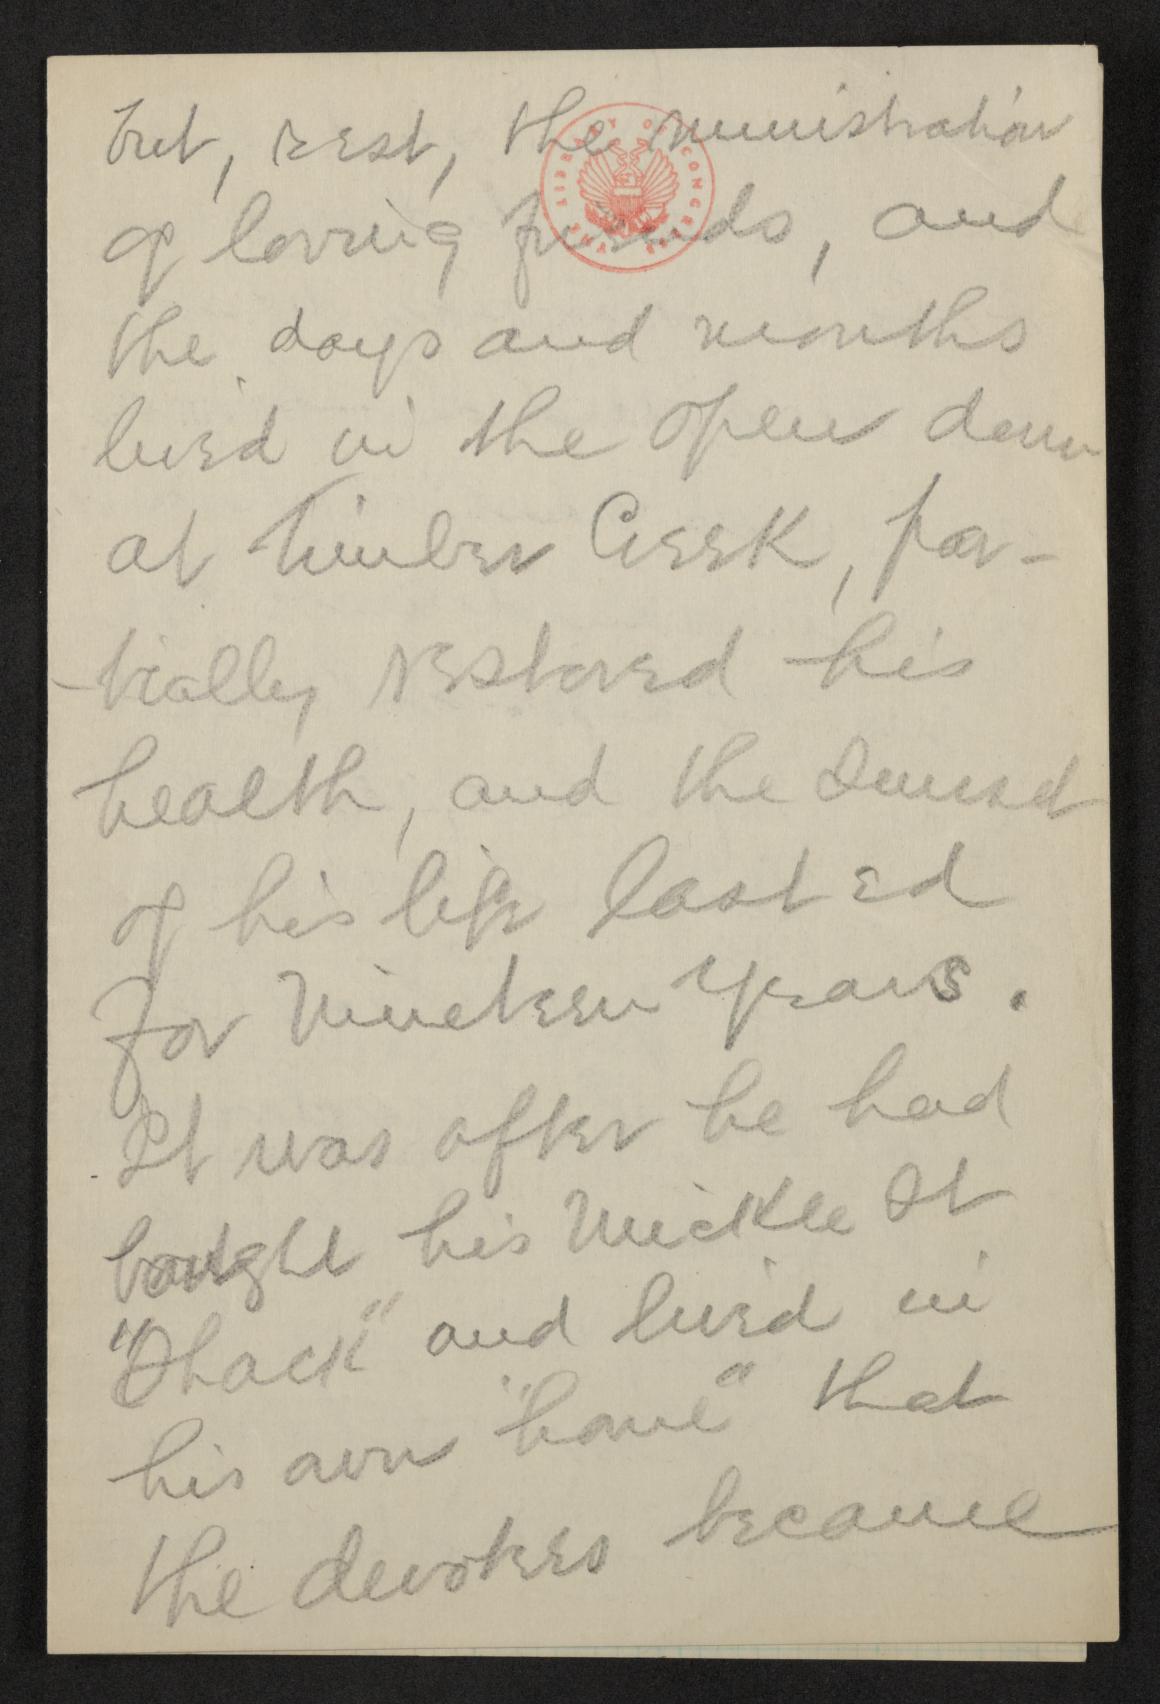 but, rest, the ministration
of loving friends, and
the days and months
lived in the open down
at Timber Creek, par-
-tially restored his
health, and the Sunset
of his life lasted
for Nineteen years.
It was after he had
bought his Mickle St
"Shack" and lived in
his own "home" that
the devotees became
LIBRARY OF CONGRESS